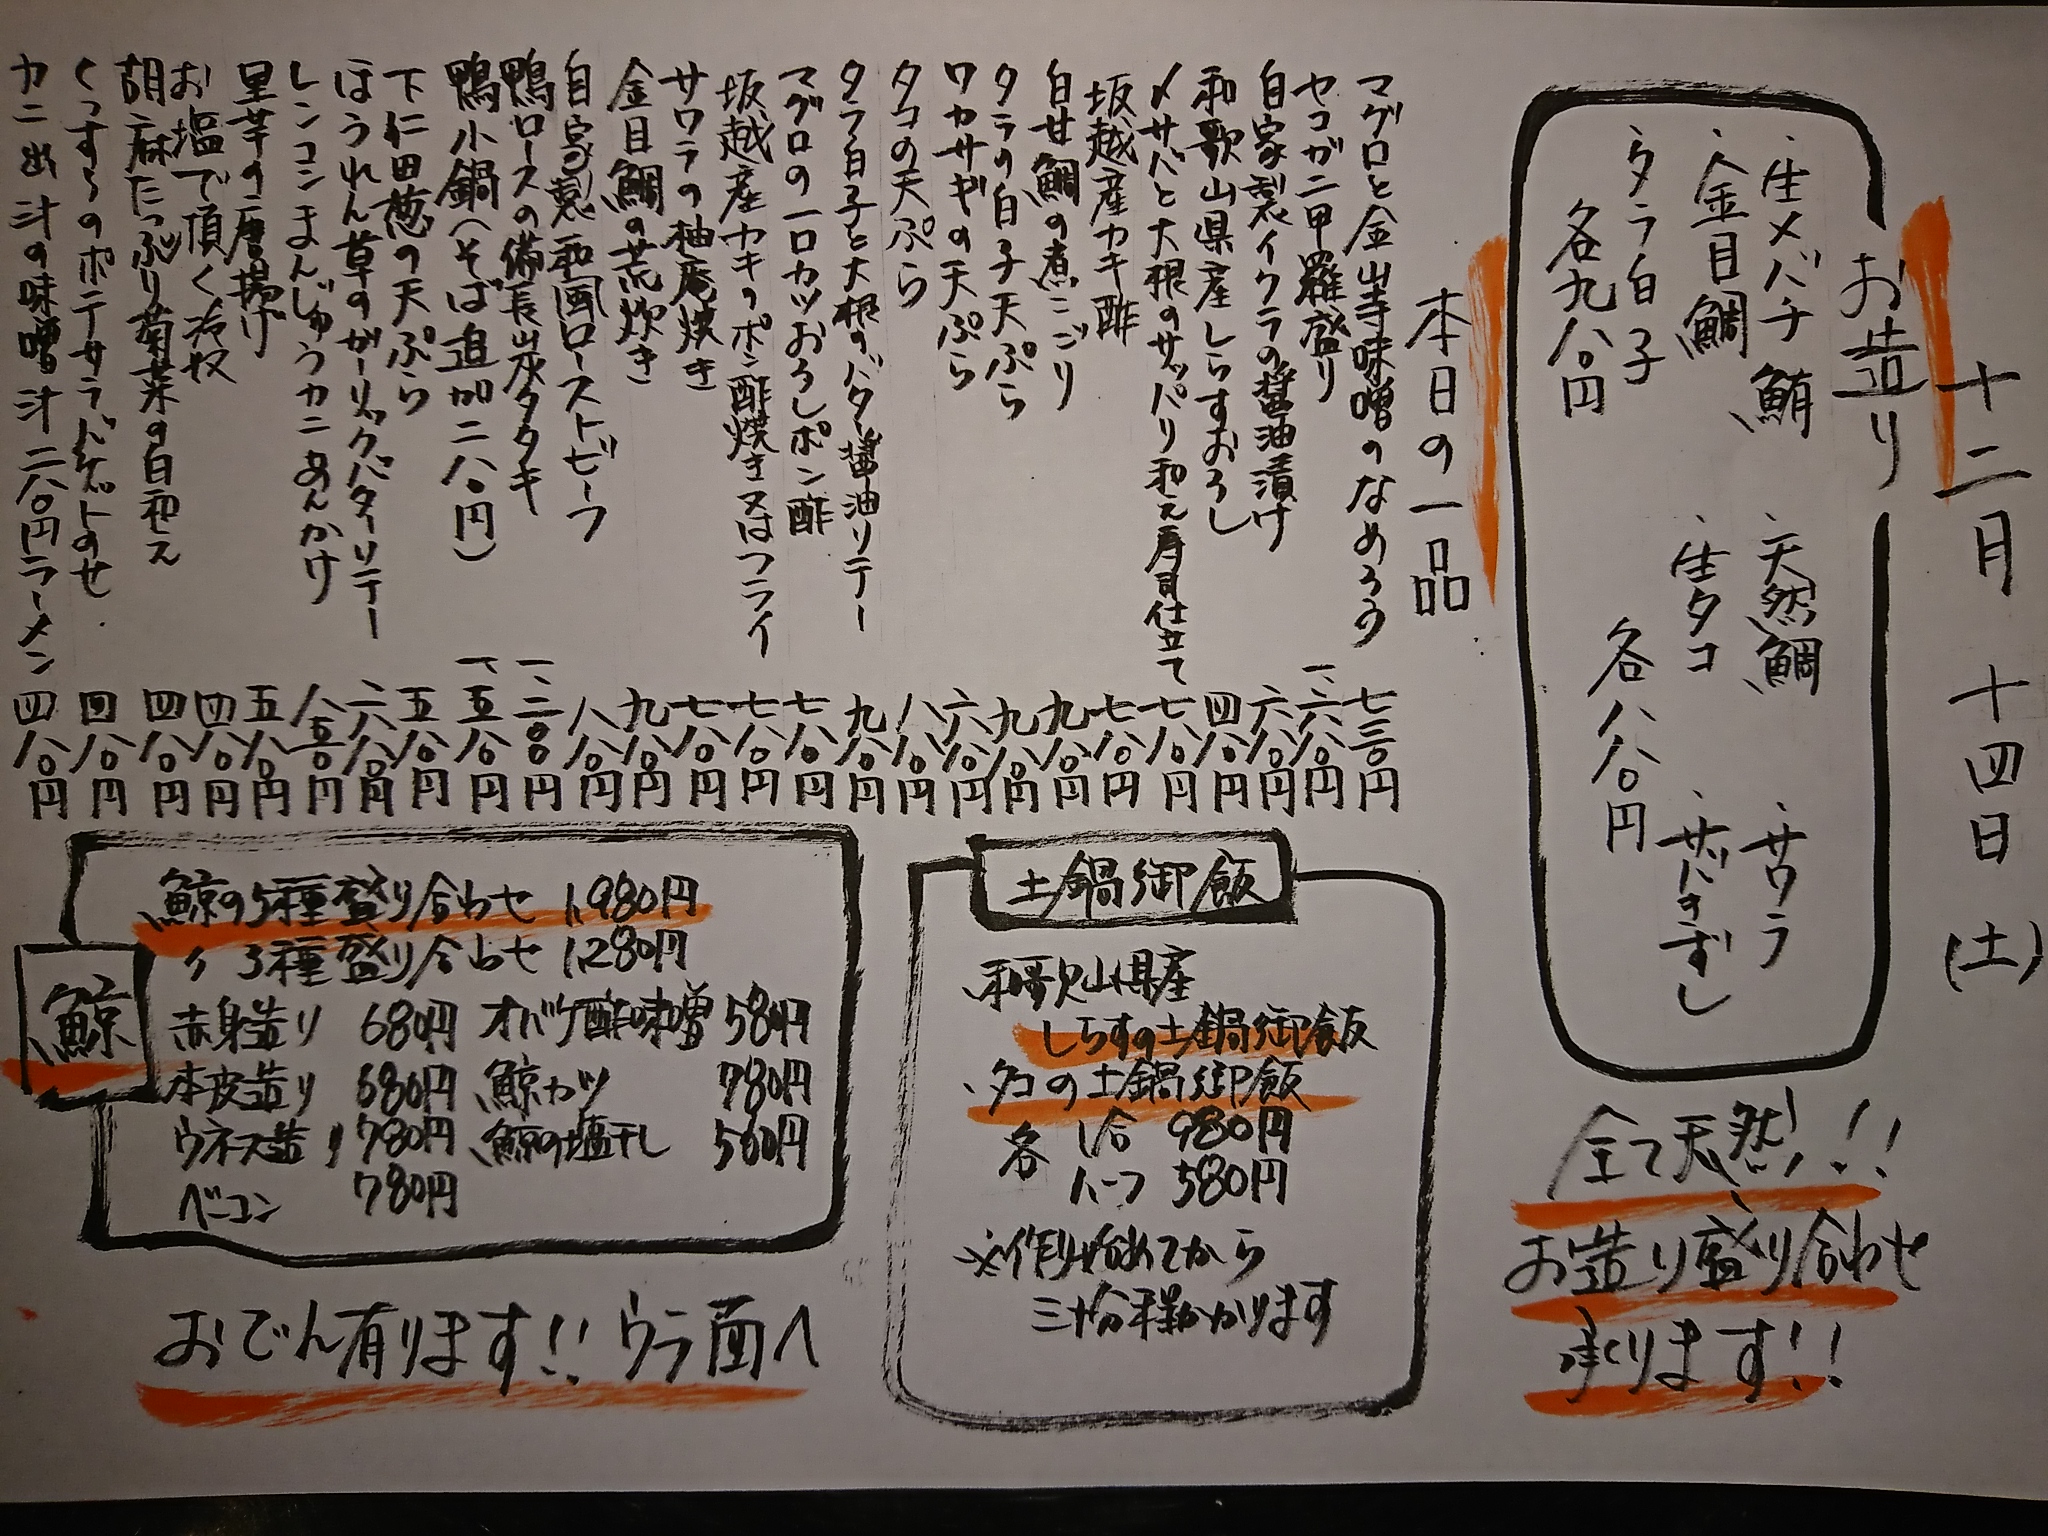 十二月 十四日 (土)
お造り
・生メバチ鮪
・金目鯛
・タラ白子
各九八〇円
・天然鯛
・生タコ
各八八〇円
・サワラ
・サバきずし
全て天然!!
お造り盛り合わせ
承ります!!
本日の一品
マグロと金山寺味噌のなめろう 七三〇円
セコガニ甲羅盛り 一、二八〇円
自家製イクラの醤油漬け 六八〇円
和歌山県産しらすおろし 四八〇円
〆サバと大根のサッパリ和え寿司仕立て 七八〇円
坂越産カキ酢 七八〇円
白甘鯛の煮こごり 九八〇円
タラの白子天ぷら 九八〇円
ワカサギの天ぷら 六八〇円
タコの天ぷら 八八〇円
タラ白子と大根のバター醤油ソテー 九八〇円
マグロの一口カツおろしポン酢 七八〇円
坂越産カキのポン酢焼き又はフライ 七八〇円
サワラの柚庵焼き 七八〇円
金目鯛の荒炊き 九八〇円
自家製和風ローストビーフ 八八〇円
鴨ロースの備長炭タタキ 一、二〇〇円
鴨小鍋(そば追加二八〇円) 一、五八〇円
下仁田葱の天ぷら 五八〇円
ほうれん草のガーリックバターソテー 六八〇円
レンコンまんじゅうカニあんかけ 八五〇円
里芋の唐揚げ 五八〇円
お塩で頂く冷奴 四八〇円
胡麻たっぷり菊菜の白和え 四八〇円
くっすらのポテサラバゲットのせ 四八〇円
カニ出汁の味噌汁二八〇円ラーメン 四八〇円
土鍋御飯
・和歌山県産
しらすの土鍋御飯
・タコの土鍋御飯
各 1合 980円
ハーフ 580円
※作り始めてから
三十分程かかります
鯨
鯨の5種盛り合わせ 1,980円
〃 3種盛り合わせ 1,280円
赤身造り 680円 オバケ酢味噌 580円
本皮造り 680円 鯨カツ 780円
ウネス造り 780円 鯨の塩干し 560円
ベーコン 780円
おでん有ります!! ウラ面へ